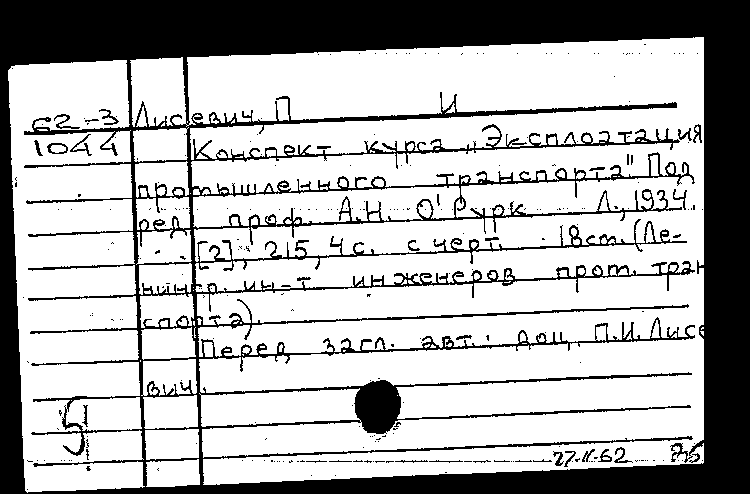 62-3 Лисевич, П И
1044 Конспект курса „Эксплоатация
промышленного транспорта" Под
ред. проф. А.Н. О'Рурк Л., 1934.
[2], 215, 4 с. с черт. 18 см. (Ле-
нингр. ин-т инженеров пром. тран
спорта).
Перед загл. авт.: доц. П.И. Лисе
вич.
5
62